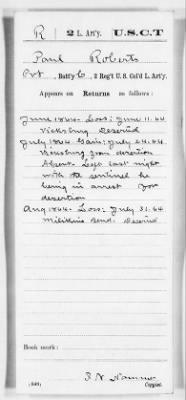 R | 2 L. Art'y. | U.S.C.T
Paul Roberts
Pvt., Batt'y C, 2 Reg't U.S. Col'd L. Art'y.
Appears on Returns as follows:
June 1864. Loss: June 11.64
Vicksburg Deserted
July 1864 Gain: July 24.64
Vicksburg from desertion
Absent Left last night
with the sentinel he
being in arrest for
desertion
Aug 1864. Loss: July 31.64
Millikins Bend. Deserted
Book mark:
(546)
Copyist.